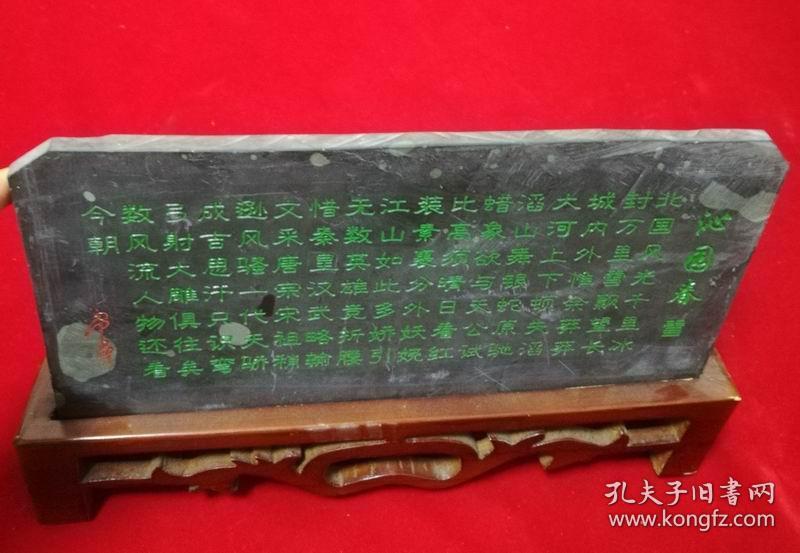 沁园春雪
北国风光千里冰
封万里雪飘望长
城内外惟余莽莽
大河上下顿失滔
滔山舞银蛇原驰
蜡象欲与天公试
比高须晴日看红
装素裹分外妖娆
江山如此多娇引
无数英雄竞折腰
惜秦皇汉武略输
文采唐宗宋祖稍
逊风骚一代天骄
成吉思汗只识弯
弓射大雕俱往矣
数风流人物还看
今朝
孔夫子旧書网
www.kongfz.com